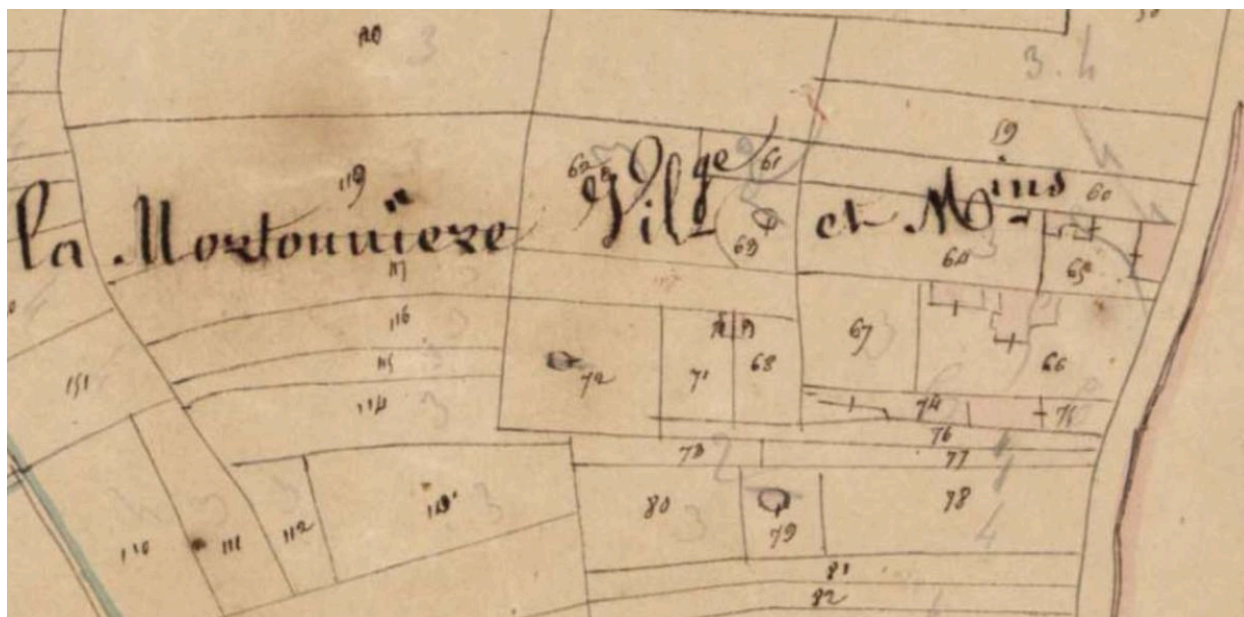 120 3
3.4
59
119
62
61
60
la Mortonnière Vilge et Mins
69
64
65
117
116
67
66
115
72
71
68
151
114
74
75
76
73
77
80
79
78
110
111
112
113
81
82